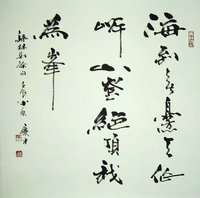 海到无邊天作
岸山登絕頂我
為峯
林則徐句